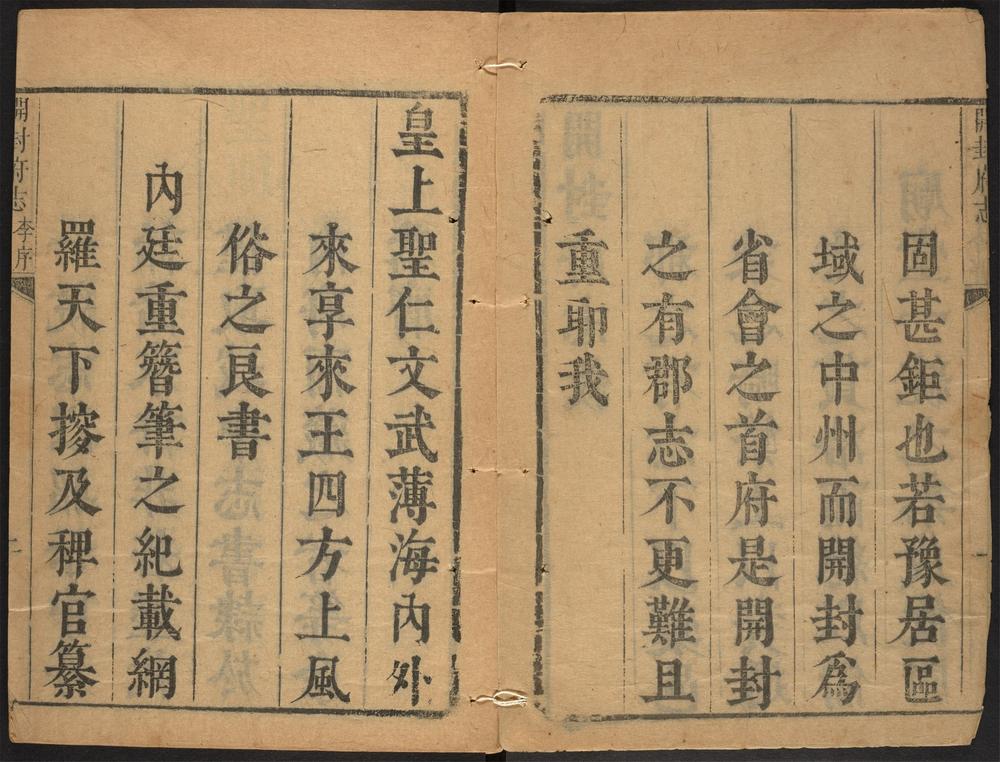 開封府志
固甚鉅也若豫居區
域之中州而開封為
省會之首府是開封
之有郡志不更難且
重耶我
皇上聖仁文武薄海內外
來享來王四方上風
俗之良書
內廷重簪筆之紀載網
羅天下搜及稗官纂
開封府志 李序
二